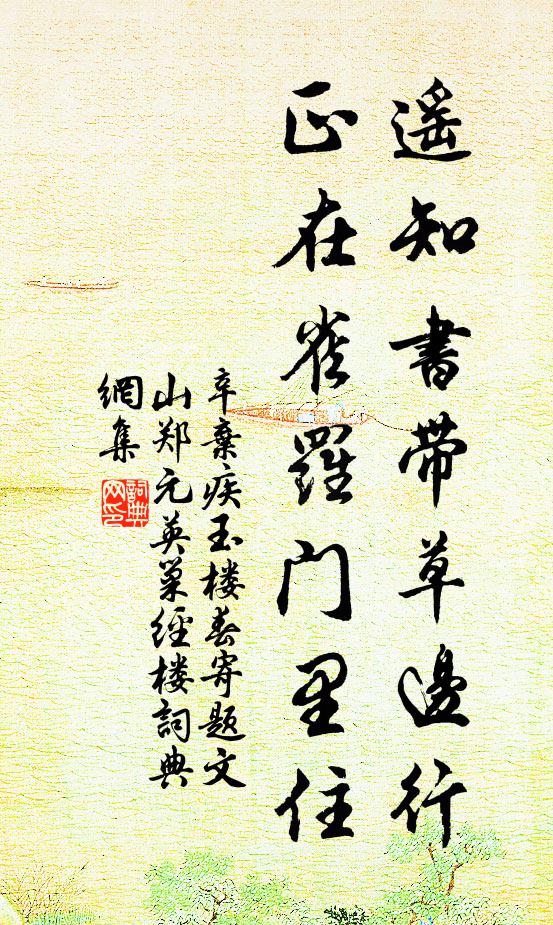 遥知書带草邊行
正在雀羅門里住
辛棄疾玉楼春寄题文
山郑元英巢經楼詞典
網集
詞典網印